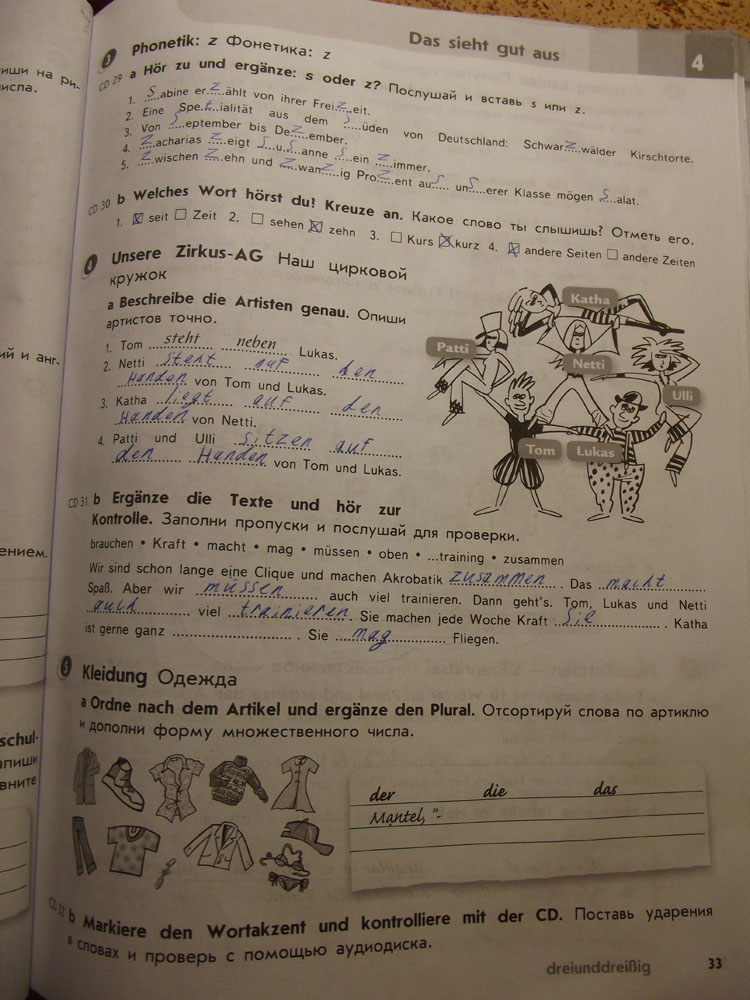 Das sieht gut aus
4
3 Phonetik: z Фонетика: z
CD 29 a Hör zu und ergänze: s oder z? Послушай и вставь s или z.
1. S abine er z ählt von ihrer Frei z eit.
2. Eine Spe t ialität aus dem S üden von Deutschland: Schwar z wälder Kirschtorte.
3. Von S eptember bis De z ember.
4. Z acharias z eigt S u s anne s ein z immer.
5. Z wischen z ehn und z wan z ig Pro z ent au s un s erer Klasse mögen S alat.
CD 30 b Welches Wort hörst du? Kreuze an. Какое слово ты слышишь? Отметь его.
1. ☒ seit ☐ Zeit 2. ☐ sehen ☒ zehn 3. ☐ Kurs ☒ kurz 4. ☒ andere Seiten ☐ andere Zeiten
4 Unsere Zirkus-AG Наш цирковой
кружок
a Beschreibe die Artisten genau. Опиши
артистов точно.
1. Tom steht neben Lukas.
2. Netti steht auf den
Handen von Tom und Lukas.
3. Katha liegt auf den
Handen von Netti.
4. Patti und Ulli sitzen auf
den Handen von Tom und Lukas.
Katha
Patti
Netti
Ulli
Tom
Lukas
CD 31 b Ergänze die Texte und hör zur
Kontrolle. Заполни пропуски и послушай для проверки.
brauchen • Kraft • macht • mag • müssen • oben • ...training • zusammen
Wir sind schon lange eine Clique und machen Akrobatik zusammen. Das macht
Spaß. Aber wir müssen auch viel trainieren. Dann geht's. Tom, Lukas und Netti
auch viel trainieren. Sie machen jede Woche Kraft sie. Katha
ist gerne ganz .............................. . Sie mag Fliegen.
5 Kleidung Одежда
a Ordne nach dem Artikel und ergänze den Plural. Отсортируй слова по артиклю
и дополни форму множественного числа.
der die das
Mantel, "-
CD 32 b Markiere den Wortakzent und kontrolliere mit der CD. Поставь ударения
в словах и проверь с помощью аудиодиска.
dreiunddreißig 33
иши на ри-
исла.
ий и анг.
ением.
schul-
апиши
вните